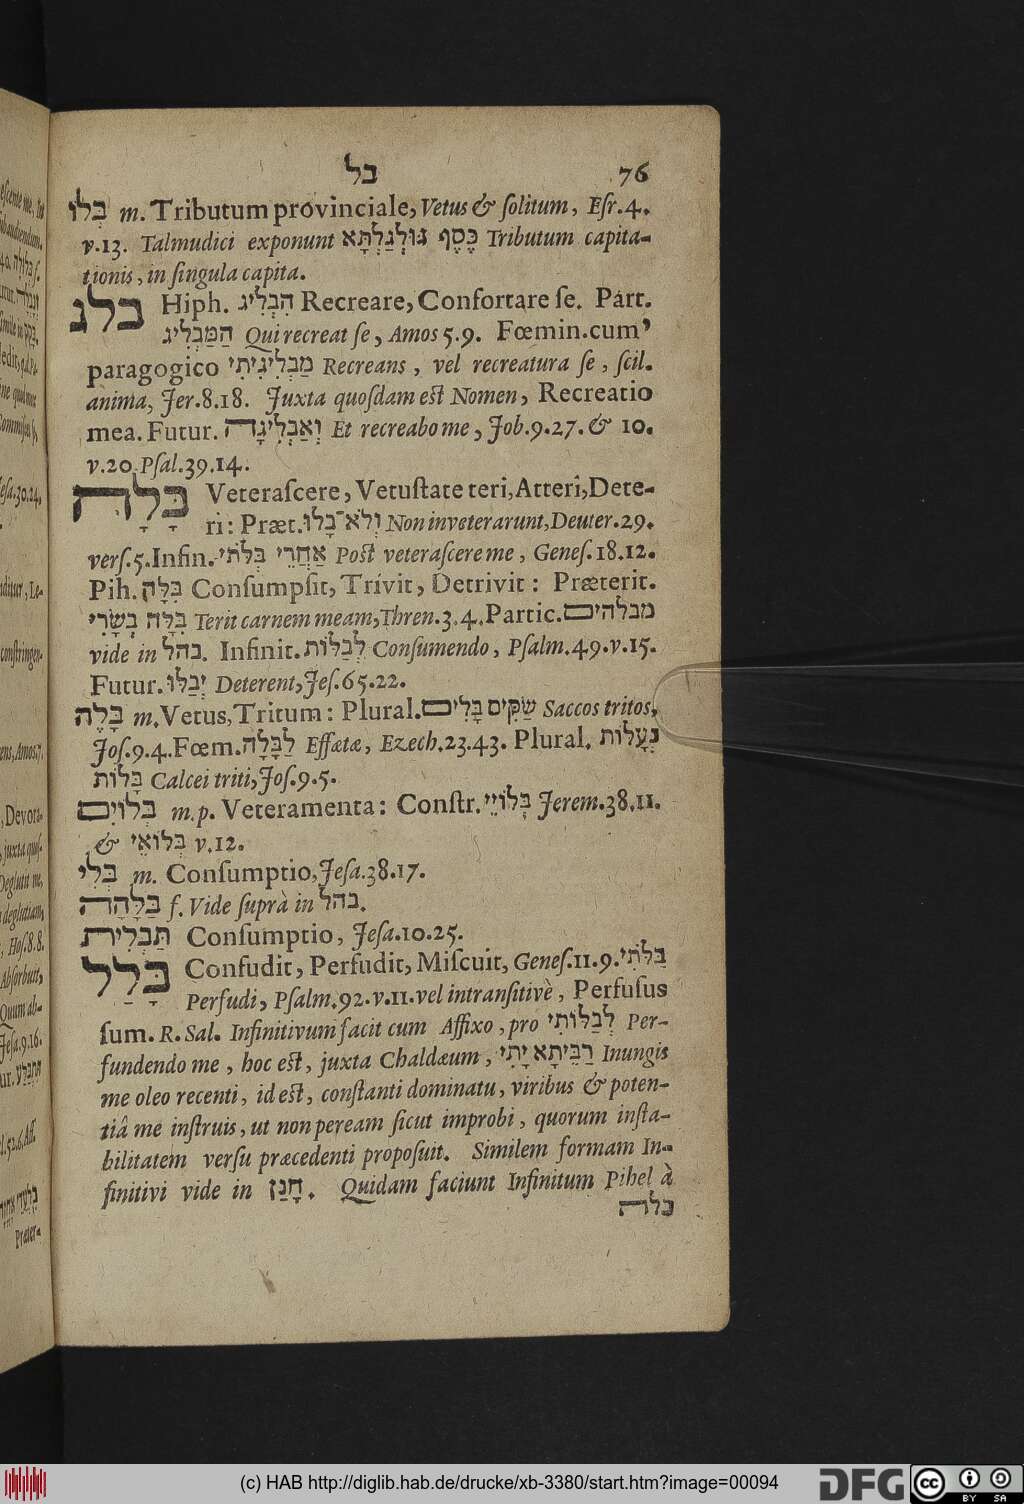 בל 76
בְּלוֹ m. Tributum provinciale, Vetus & ſolitum, Eſr.4.
v.13. Talmudici exponunt כֶּסֶף גּוּלְגַּלְתָּא Tributum capita-
tionis, in ſingula capita.
בלג Hiph. הִבְלִיג Recreare, Confortare ſe. Part.
הַמַּבְלִיג Qui recreat ſe, Amos 5.9. Fœmin. cum '
paragogico מַבְלִיגִיתִי Recreans, vel recreatura ſe, ſcil.
anima, Jer.8.18. Juxta quoſdam eſt Nomen, Recreatio
mea. Futur. וְאַבְלִיגָה Et recreabo me, Job.9.27. & 10.
v.20. Pſal.39.14.
בָּלָה Veteraſcere, Vetuſtate teri, Atteri, Dete-
ri: Præt. וְלֹא־בָלוּ Non inveterarunt, Deuter.29.
verſ.5. Infin. אַחֲרֵי בְּלֹתִי Poſt veteraſcere me, Geneſ.18.12.
Pih. בִּלָּה Conſumpſit, Trivit, Detrivit: Præterit.
בִּלָּה בְשָׂרִי Terit carnem meam, Thren.3.4. Partic. מבלהים
vide in בהל. Infinit. לְבַלּוֹת Conſumendo, Pſalm.49.v.15.
Futur. יְבַלּוּ Deterent, Jeſ.65.22.
בָּלֶה m. Vetus, Tritum: Plural. שַׂקִּים בָּלִים Saccos tritos,
Joſ.9.4. Fœm. לַבָּלָה Effœtæ, Ezech.23.43. Plural. נְעָלוֹת
בָּלוֹת Calcei triti, Joſ.9.5.
בְּלוֹיִם m.p. Veteramenta: Conſtr. בְּלוֹיֵי Jerem.38.11.
& בְּלוֹאֵי v.12.
בְּלִי m. Conſumptio, Jeſa.38.17.
בַּלָּהָה f. Vide ſuprà in בהל.
תַּבְלִית Conſumptio, Jeſa.10.25.
בָּלַל Confudit, Perfudit, Miſcuit, Geneſ.11.9. בַּלֹּתִי
Perfudi, Pſalm.92.v.11. vel intranſitivè, Perfuſus
ſum. R. Sal. Infinitivum facit cum Affixo, pro לְבַלּוֹתִי Per-
fundendo me, hoc eſt, juxta Chaldæum, רַבֵּיתָא יָתִי Inungis
me oleo recenti, id eſt, conſtanti dominatu, viribus & poten-
tiâ me inſtruis, ut non peream ſicut improbi, quorum inſta-
bilitatem verſu præcedenti propoſuit. Similem formam In-
finitivi vide in חָנַן. Quidam faciunt Infinitum Pihel à
בלה
(c) HAB http://diglib.hab.de/drucke/xb-3380/start.htm?image=00094
DFG cc BY SA